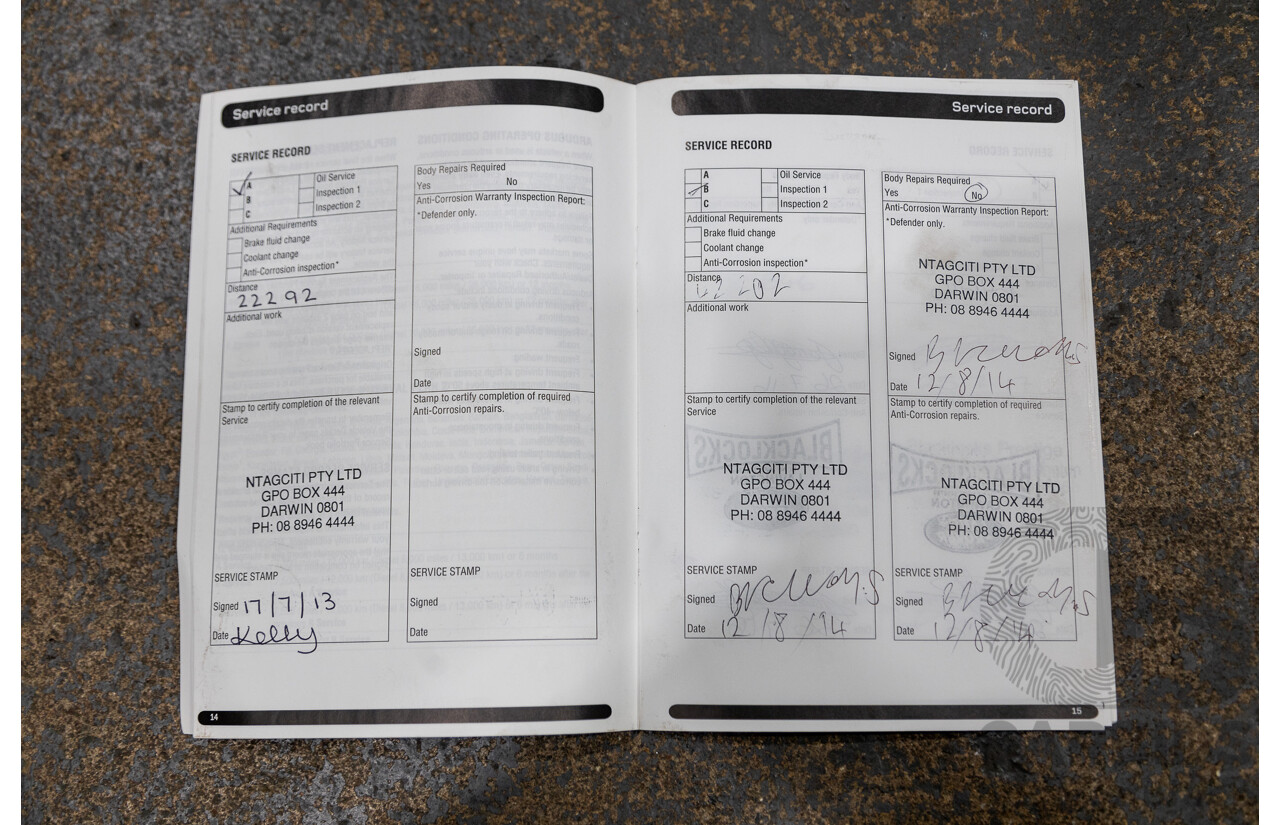 Service record
SERVICE RECORD
A
B
C
Oil Service
Inspection 1
Inspection 2
Additional Requirements
Brake fluid change
Coolant change
Anti-Corrosion inspection*
Distance
22292
Additional work
Stamp to certify completion of the relevant
Service
NTAGCITI PTY LTD
GPO BOX 444
DARWIN 0801
PH: 08 8946 4444
SERVICE STAMP
Signed 17/7/13
Date Kelly
Body Repairs Required
Yes No
Anti-Corrosion Warranty Inspection Report:
*Defender only.
Signed
Date
Stamp to certify completion of required
Anti-Corrosion repairs.
SERVICE STAMP
Signed
Date
14
Service record
SERVICE RECORD
A
B
C
Oil Service
Inspection 1
Inspection 2
Additional Requirements
Brake fluid change
Coolant change
Anti-Corrosion inspection*
Distance
Additional work
Stamp to certify completion of the relevant
Service
NTAGCITI PTY LTD
GPO BOX 444
DARWIN 0801
PH: 08 8946 4444
SERVICE STAMP
Signed
Date 12/8/14
Body Repairs Required
Yes No
Anti-Corrosion Warranty Inspection Report:
*Defender only.
NTAGCITI PTY LTD
GPO BOX 444
DARWIN 0801
PH: 08 8946 4444
Signed
Date 12/8/14
Stamp to certify completion of required
Anti-Corrosion repairs.
NTAGCITI PTY LTD
GPO BOX 444
DARWIN 0801
PH: 08 8946 4444
SERVICE STAMP
Signed
Date 12/8/14
15